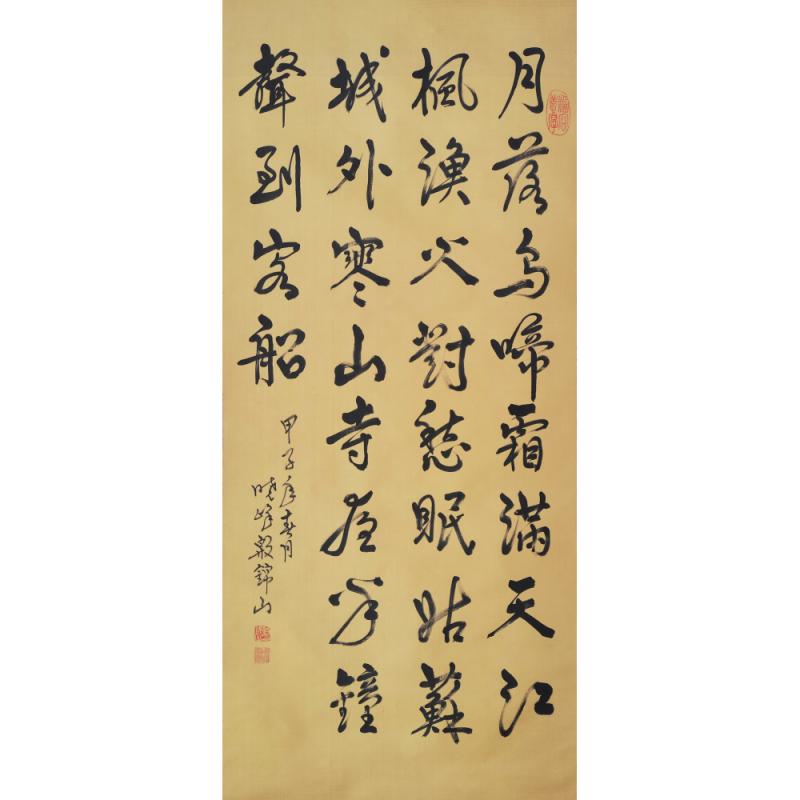 月落烏啼霜滿天江
楓漁火對愁眠姑蘇
城外寒山寺夜半鐘
聲到客船
甲子年春月
曉峰 錦山